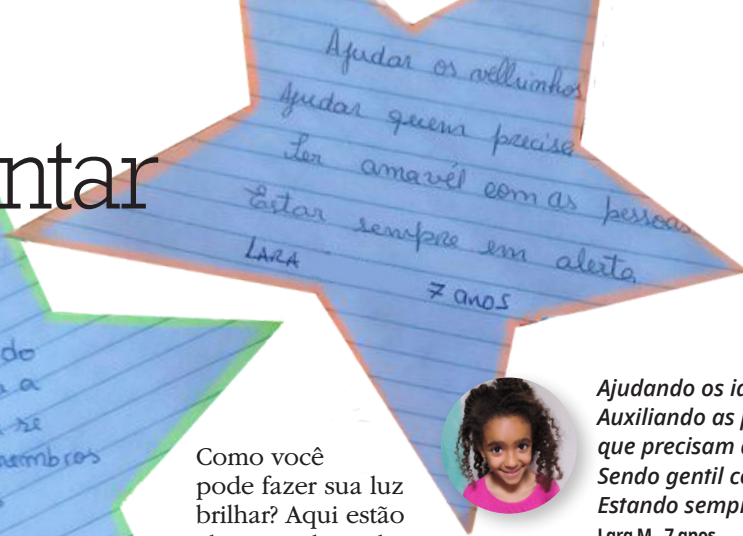 ntar
Ajudar os velhinhos
Ajudar quem precisa
Ser amavél com as pessoas
Estar sempre em alerta
LARA 7 anos
do
a
re
membros
Como você
pode fazer sua luz
brilhar? Aqui estão
Ajudando os id
Auxiliando as p
que precisam
Sendo gentil c
Estando sempr
Lara M., 7 anos